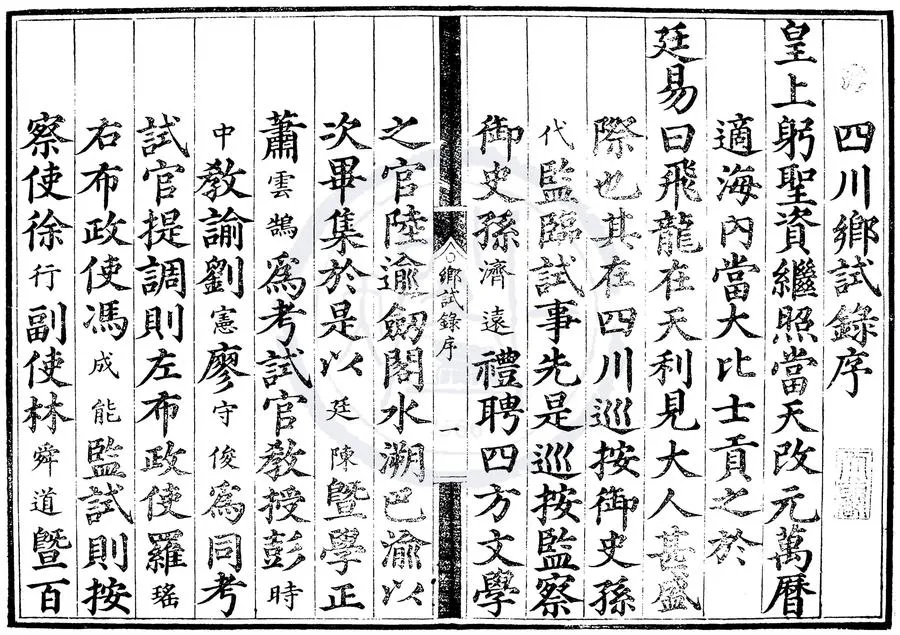 四川鄉試錄序
皇上躬聖資繼照當天改元萬曆
適海內當大比士貢之於
廷易曰飛龍在天利見大人甚盛
際也其在四川巡按御史孫
代監臨試事先是巡按監察
御史孫濟遠禮聘四方文學
鄉試錄序 一
之官陸逾劒閣水溯巴渝以
次畢集於是以廷陳曁學正
蕭雲鵠爲考試官敎授彭時
中敎諭劉憲廖守俊爲同考
試官提調則左布政使羅瑤
右布政使馮成能監試則按
察使徐行副使林舜道曁百